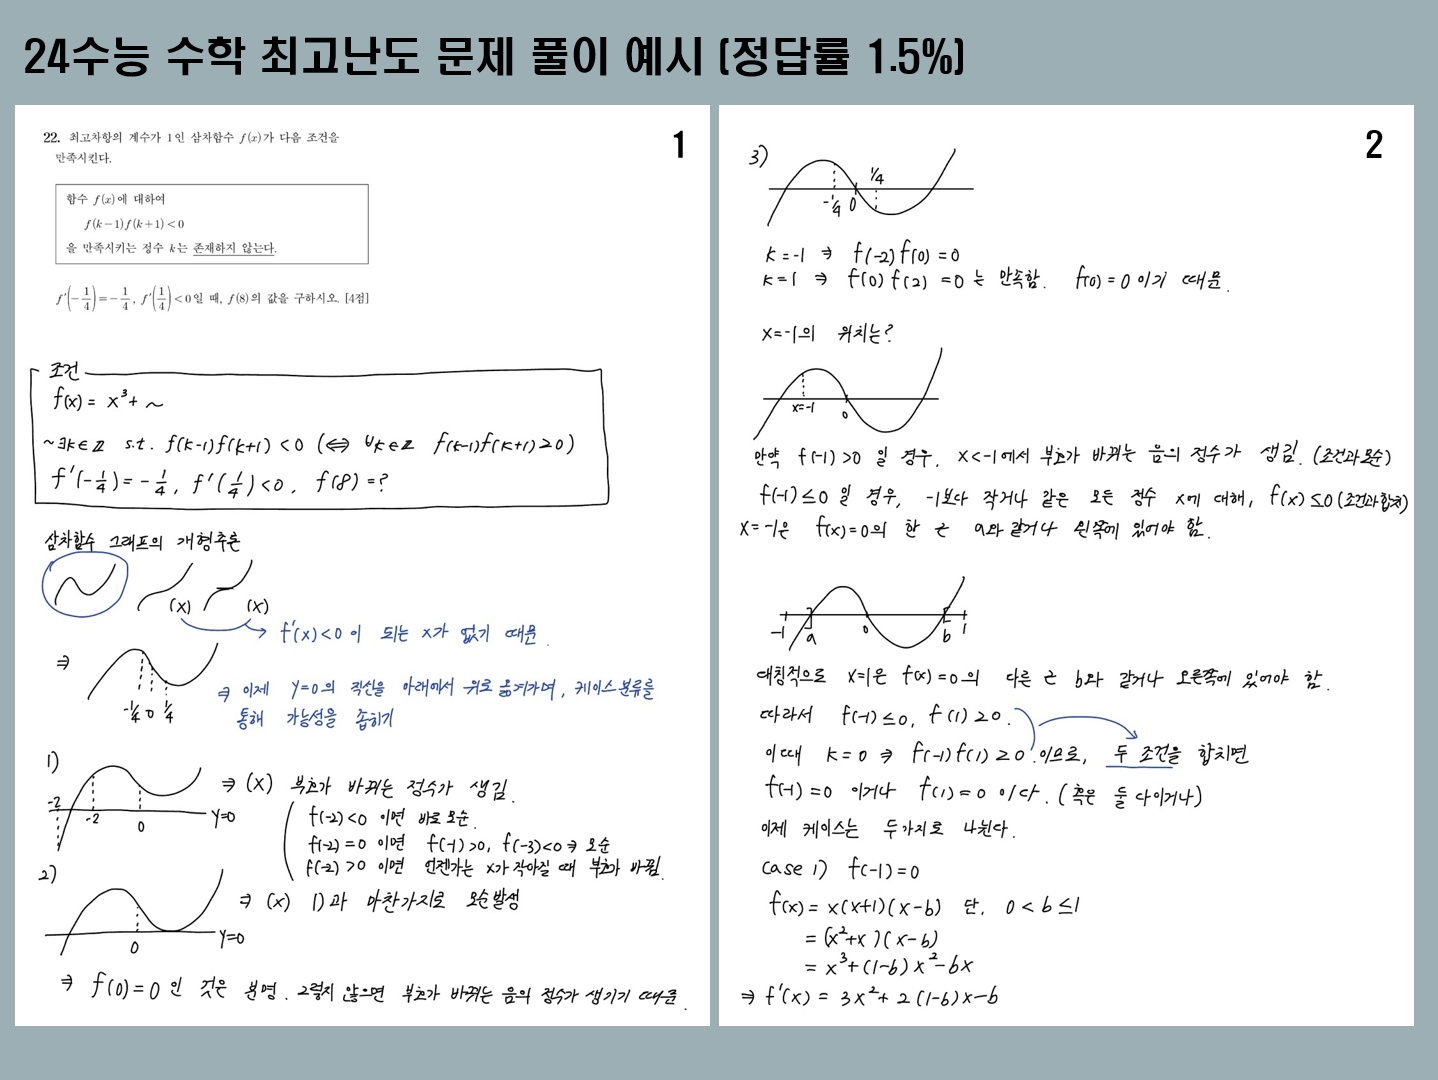 24수능 수학 최고난도 문제 풀이 예시 (정답률 1.5%)
1
22. 최고차항의 계수가 1인 삼차함수 f(x)가 다음 조건을
만족시킨다.
함수 f(x)에 대하여
f(k-1)f(k+1)<0
을 만족시키는 정수 k는 존재하지 않는다.
f'(-1/4)=-1/4, f'(1/4)<0일 때, f(8)의 값을 구하시오. [4점]
조건
f(x) = x³+ ~
~∃k∈ℤ s.t. f(k-1)f(k+1) <0 (⇔ ∀k∈ℤ f(k-1)f(k+1)≥0)
f'(-1/4) = -1/4, f'(1/4)<0. f(8)=?
삼차함수 그래프의 개형추론
(x) (x)
f'(x)<0이 되는 x가 없기 때문.
⇒
-1/4 0 1/4
⇒ 이제 y=0의 직선을 아래에서 위로 옮겨가며, 케이스분류를
통해 가능성을 좁히기
1)
-2 -2 0 y=0
⇒ (x) 부호가 바뀌는 정수가 생김.
f(-2)<0 이면 바로 모순.
f(-2)=0 이면 f(-1)>0, f(-3)<0 ⇒ 모순
f(-2)>0 이면 언젠가는 x가 작아질 때 부호가 바뀜.
2)
0 y=0
⇒ (x) 1)과 마찬가지로 모순발생
⇒ f(0)=0 인 것은 분명. 그렇지 않으면 부호가 바뀌는 음의 정수가 생기기 때문.
2
3)
-1/4 0 1/4
k=-1 ⇒ f(-2)f(0)=0
k=1 ⇒ f(0)f(2)=0 는 만족함. f(0)=0 이기 때문.
x=-1의 위치는?
x=-1 0
만약 f(-1)>0 일 경우, x<-1에서 부호가 바뀌는 음의 정수가 생김. (조건과모순)
f(-1)≤0 일 경우, -1보다 작거나 같은 모든 정수 x에 대해, f(x)≤0 (조건과합치)
x=-1은 f(x)=0의 한 근 a와 같거나 왼쪽에 있어야 함.
-1 a 0 b 1
대칭적으로 x=1은 f(x)=0의 다른 근 b와 같거나 오른쪽에 있어야 함.
따라서 f(-1)≤0, f(1)≥0.
이때 k=0 ⇒ f(-1)f(1)≥0.이므로, 두 조건을 합치면
f(-1)=0 이거나 f(1)=0 이다. (혹은 둘 다이거나)
이제 케이스는 두가지로 나뉜다.
case 1) f(-1)=0
f(x) = x(x+1)(x-b) 단, 0<b≤1
= (x²+x)(x-b)
= x³+(1-b)x²-bx
⇒ f'(x) = 3x²+2(1-b)x-b